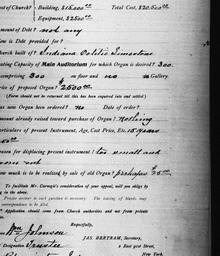 of Church? Building, $18,000 Total Cost, $20,500.00
Equipment, $2500
Amount of Debt? not any
How is Debt provided for?
Church built of? Indiana Oolitic Limestone
Seating Capacity of Main Auditorium for which Organ is desired? 300.
comprising 300 on floor and no in Gallery.
Price of proposed Organ? 2600.00
(Form should not be returned till this has been enquired into and settled)
was new Organ been ordered? no Date of order?
Amount already raised toward purchase of Organ? nothing
Particulars of present Instrument, Age, Cost Price, Etc. 15 years
50.00
Reason for displacing present instrument? too small and
worn out
How much is to be realized by sale of old Organ? perhaps $25.00
To facilitate Mr. Carnegie's consideration of your appeal, will you oblige by
filling in the above.
necessary. The issuing of blanks may
correspondence to be expected.
Application should come from Church authorities and not from private
Respectfully,
Wm Johnson
JAS. BERTRAM, Secretary,
Designation Trustee
2 East 91st Street,
New York